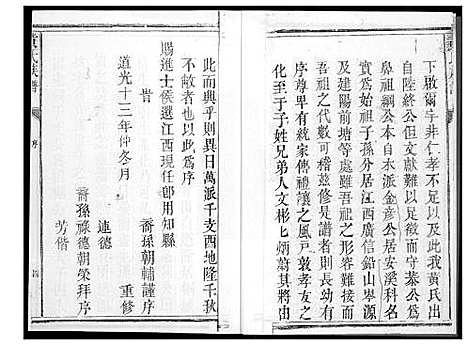 下啟爾宇非仁孝不及此我黃氏出
自陸終公但文獻難以詳以守恭公為
鼻祖綱公本自永派金彥公居安溪科名
實為始祖子孫分居江西廣信鉛山岑源
及建陽前塘等處雖吾祖之源難接而
吾祖之代數可稽茲修是譜者則長幼有
序尊卑有統家傳禮讓之風戶敦孝友之
化至于子姓兄弟人文彬匕炳蔚其將由
此而興乎則異日萬派千支酉地隆千秋
不敝者也以此為序
賜進士侯選江西現任卽用知縣
旹
裔孫朝輔謹序
道光十三年仲冬月
重修
連德
裔孫祿德朝榮拜序
芳偕
黃氏族譜
序